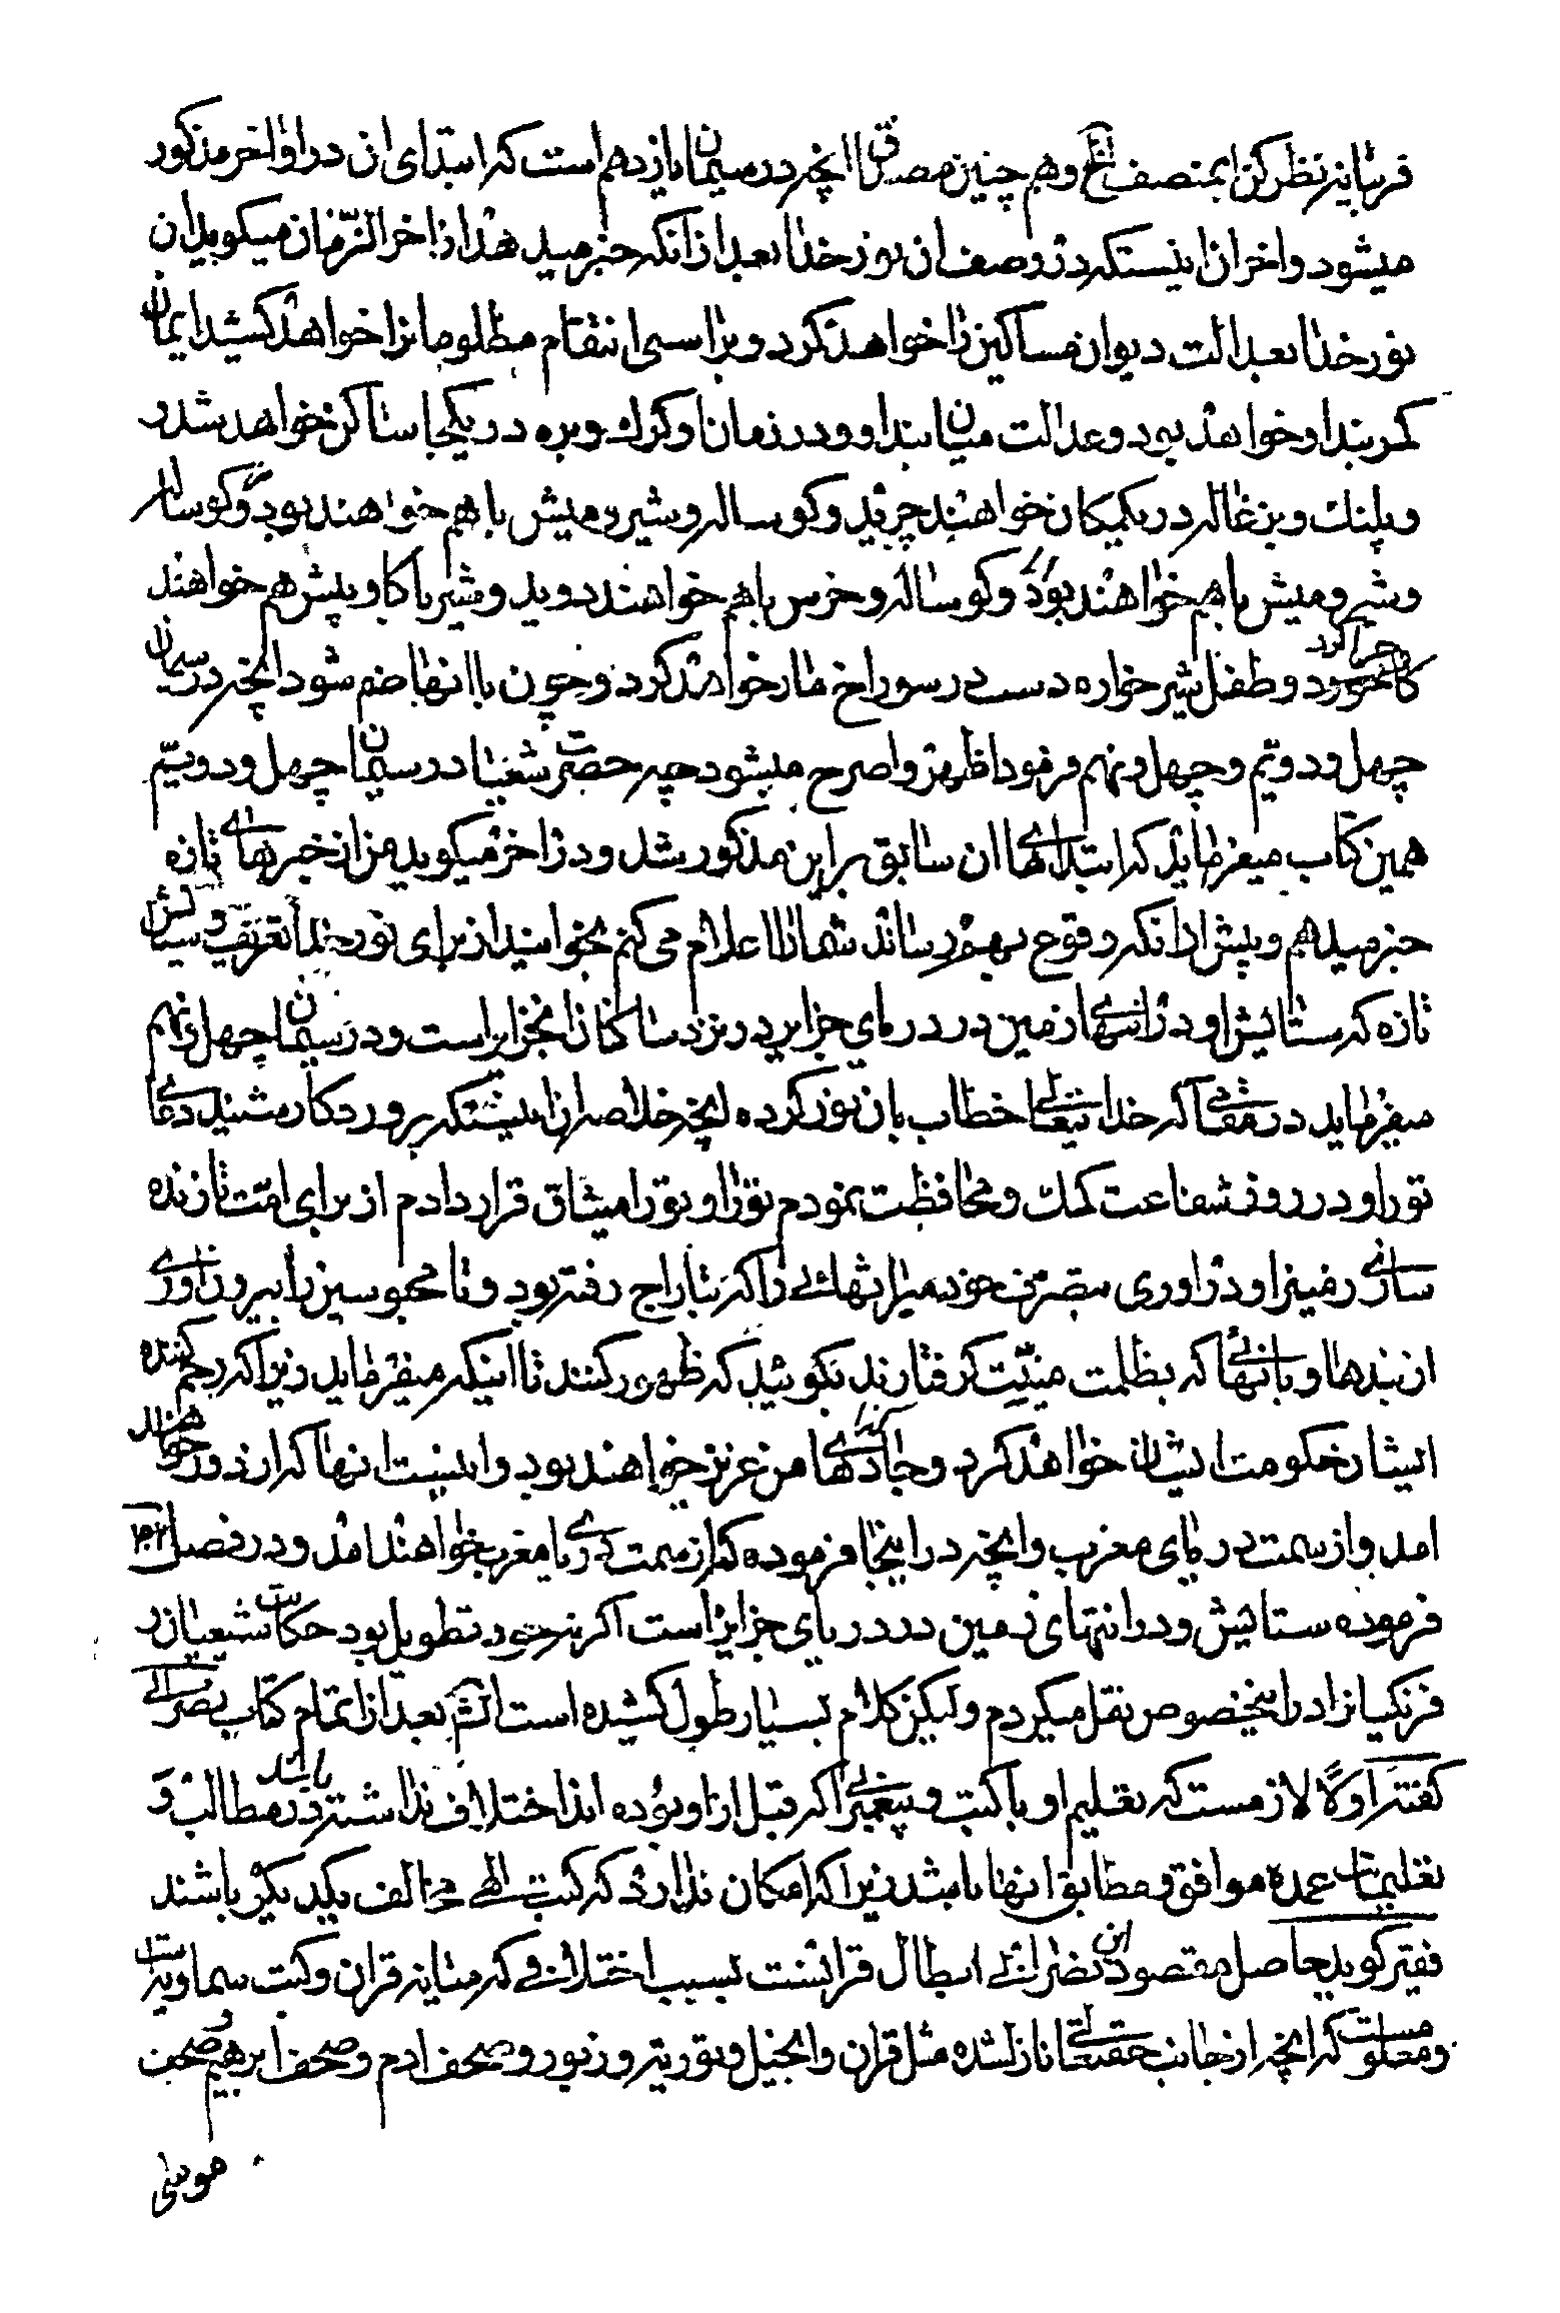 فرمایند نظر کن ای منصف الخ وهم چنین مصداق انچه در سیمان یازدهم است که ابتدای ان در اواخر مذکور
میشود واخر ان اینستکه در وصف ان نور خدا بعد از انکه خبر میدهد از اخر الزمان میگوید ان
نور خدا بعدالت دیوان مساکین را خواهد کرد و براستی انتقام مظلومانرا خواهد کشید ایمان
کمربند او خواهد بود وعدالت میان بند او ودر زمان او گرك وبره در یکجا ساکن خواهد شد و
وپلنك وبزغاله در یکمکان خواهند چرید وکوساله وشیر ومیش باهم خواهند بود وکوساله
وشیر ومیش باهم خواهند بود وکوساله وخرس باهم خواهند دوید وشیر با کاو پیش هم خواهند
کاه خورد وطفل شیر خواره دست در سوراخ مار خواهد کرد وچون با انها ضم شود انچه در سیمان
چهل ودویم وچهل ونهم فرمود اظهر واصرح میشود چه حضرت شعیا در سیمان چهل ودویم
همین کتاب میفرماید که ابتداهای ان سابق بر این مذکور شد ودر اخر میگوید من از خبرهای تازه
خبر میدهم وپیش از انکه وقوع بهم رساند شما را اعلام می کنم بخوانید از برای نور خدا تعریف وستایش
تازه که ستایش او در انتهای زمین در دریای جزایر در نزد ساکنان انجزایر است ودر سیمان چهل ونهم
میفرماید در مقامی که خدا تعالی خطاب بان نور کرده انچه خلاصه ان اینستکه پرورد کار شنید دعای
تورا ودر روز شفاعت کمك ومحافظت نمودم تورا وتورا میثاق قرار دادم از برای امت تا زنده
سازی زمین را ودر اوری بتصرف خود میراثهائی را که بتاراج رفته بود وتا محبوسین را بیرون اوری
از بندها وبانهائی که بظلمت منیّت کرفتارند بکوئید که ظهور کنند تا اینکه میفرماید زیرا که رحم کننده
ایشان حکومت ایشان خواهد کرد وجادهای من عزیز خواهند بود واینست انها که از دور خواهند
امد واز سمت دریای مغرب وانچه در اینجا فرموده که از سمت دریای مغرب خواهند امد ودر فصل ۴۲
فرموده ستایش ودر انتهای زمین در دریای جزایر است اکر نه خود تطویل بود حکایت شیعیان
فرنکیانرا در اینخصوص نقل میکردم ولیکن کلام بسیار طول کشیده است انش بعد از اتمام کتاب نصرانی
کفته اولاً لازمست که تعلیم او با کتب وپیغمبرانکه قبل از او بوده اند اختلاف نداشته باشد در مطالب و
تعلیمات عمده موافق ومطابق انها باشد زیرا که امکان ندارد که کتب الهی مخالف یکدیکر باشند
فقیر کوید حاصل مقصود این نصرانی ابطال قرانست بسبب اختلافی که میانه قران وکتب سماویه است
ومعلومست که انچه از جانب حقتعالی نازل شده مثل قران وانجیل وتوریة وزبور وصحف ادم وصحف ابرهیم وصحف
موسی